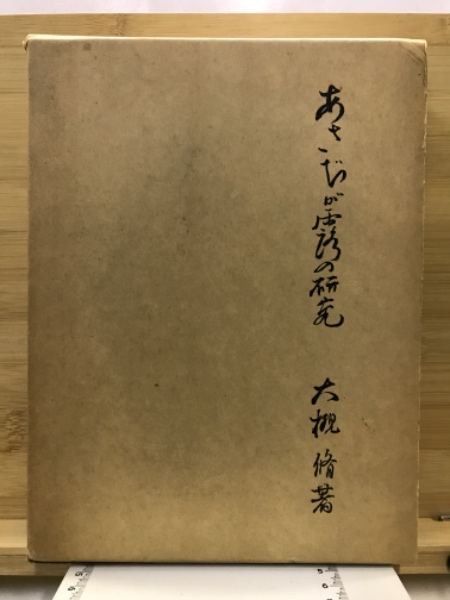 あさぢが露の研究
大槻脩著